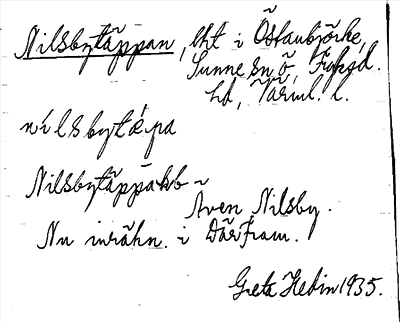 Nilsbytäppan, lht i Östanbjörke,
Sunne sn ö, Fryksd.
hd, Värml. l.
nilsbytɛpa
Nilsbytäppa hb
Även Nilsby.
Nu inräkn. i
Greta Hedin 1935.